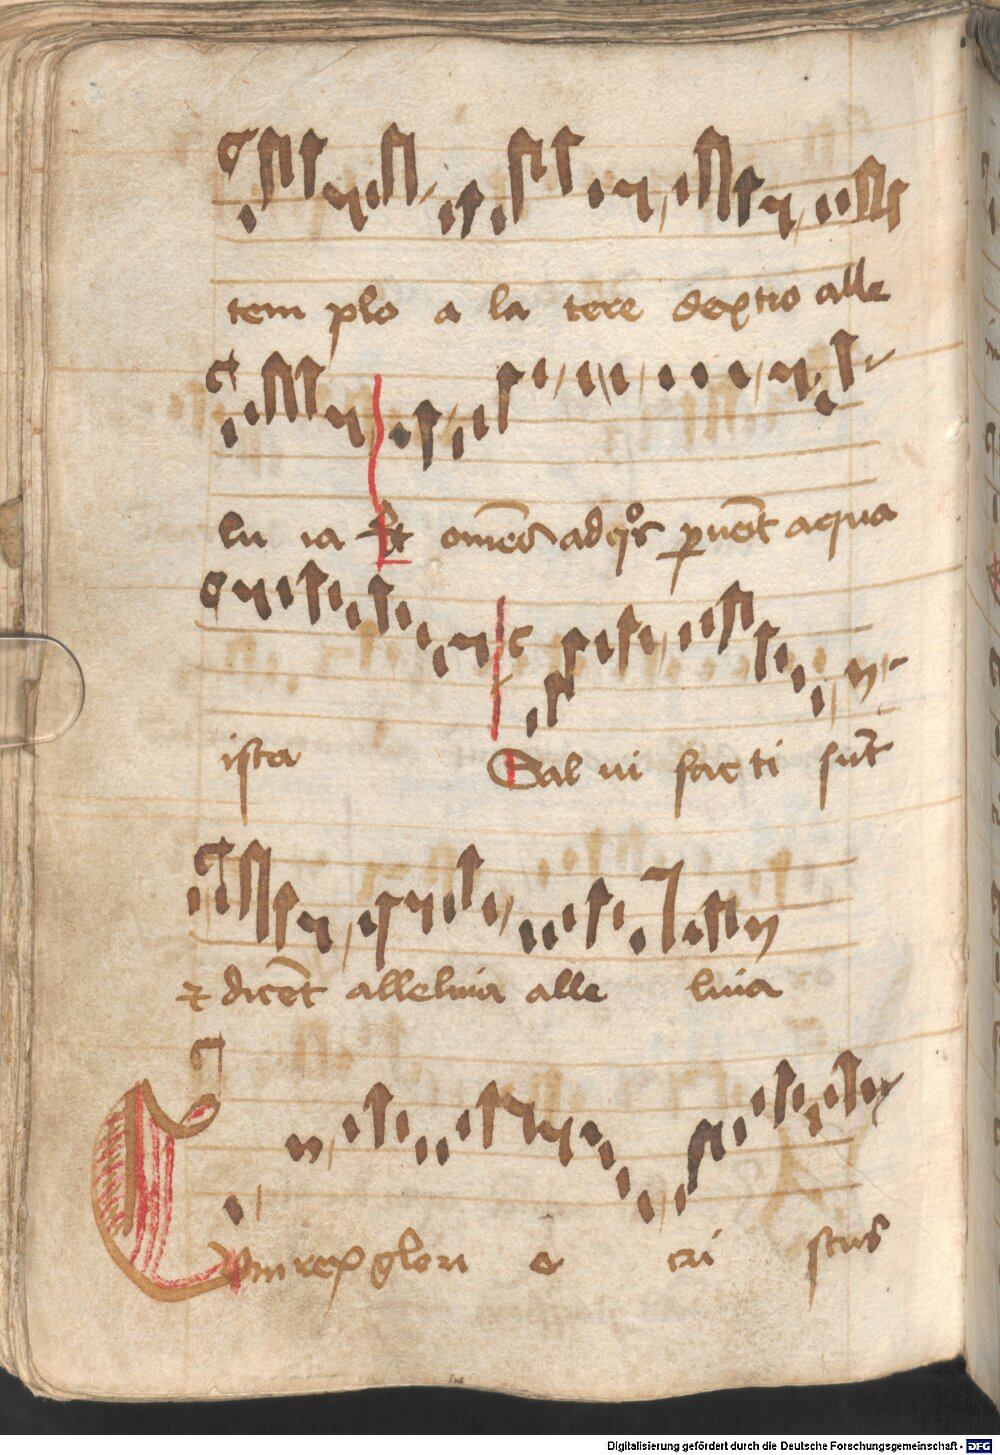 tem plo a la tere dextro alle
lu ia Et om̄es ad qͦs ꝑuēt aqua
ista Sal ui fac ti sūt
⁊ dicēt alleluia alle luia
Cum rex glori e cri stus
Digitalisierung gefördert durch die Deutsche Forschungsgemeinschaft - DFG